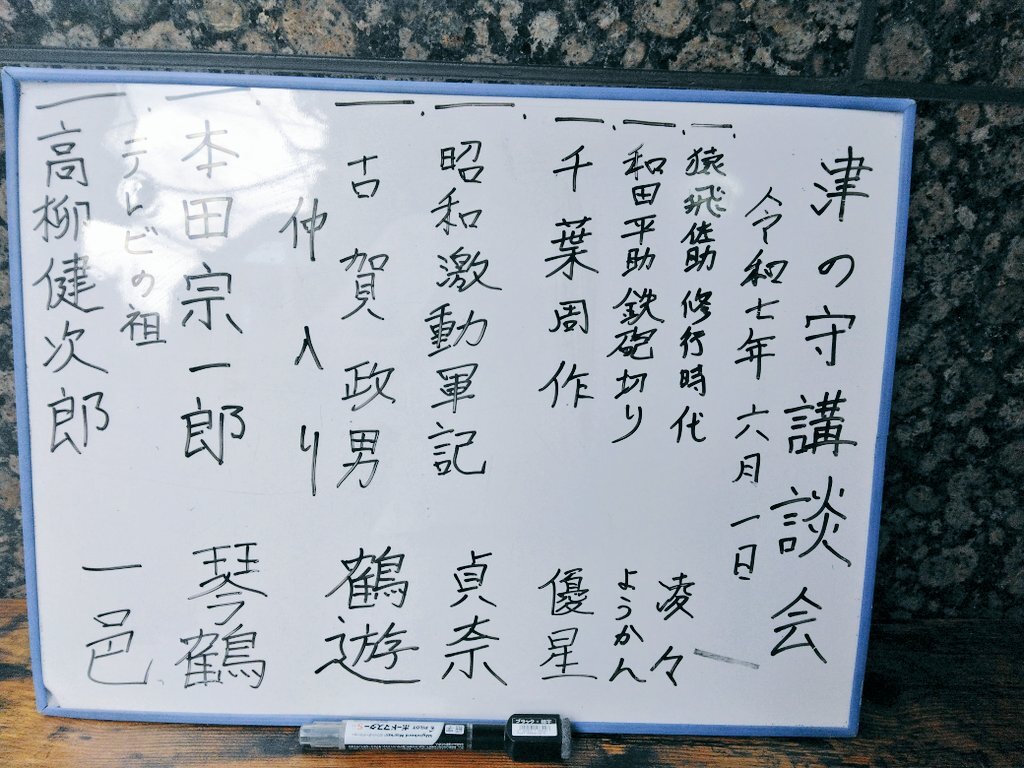 津の守講談会
令和七年 六月一日
一、猿飛佐助 修行時代 凌々
一、和田平助 鉄砲切り ようかん
一、千葉周作 優星
一、昭和激動軍記 貞奈
一、古賀政男 鶴遊
仲入り
一、本田宗一郎 琴鶴
テレビの祖
一、高柳健次郎 一邑
PILOT ボードマスター